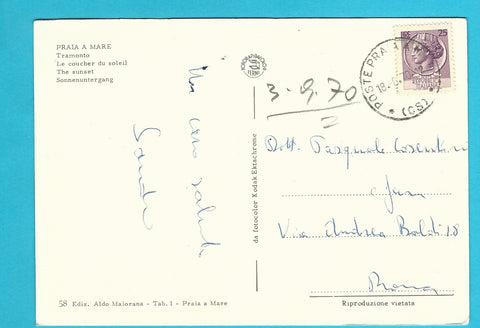 PRAIA A MARE
Tramonto
Le coucher du soleil
The sunset
Sonnenuntergang
Un caro saluto
Sandro
3.9.70
25
POSTE PRAIA A
18.
(CS)
Dott. Pasquale
Via Andrea 18
Roma
da fotocolor Kodak Ektachrome
58 Ediz. Aldo Maiorana - Tab. 1 - Praia a Mare
Riproduzione vietata